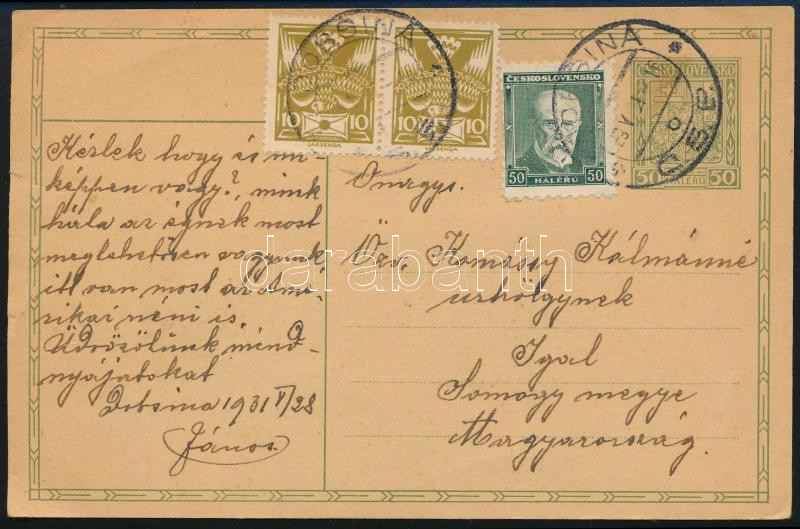 DOBŠINÁ
10 10
JASZENDA
10 10
JASZENDA
ČESKOSLOVENSKO
50 HALÉŘŮ 50
ČESKOSLOVENSKO
50 HALÉŘŮ 50
Kérlek hogy és mi-
képpen vagy?, mink
hála az égnek most
meglehetősen vagyunk
itt van most az Ame-
rikai néni is
Üdvözölünk mind-
nyájatokat
Dobsina 1931 V/28
János
Özv. Komássy Kálmánné
urhölgynek
Igal
Somogy megye
Magyarország.
darabanth